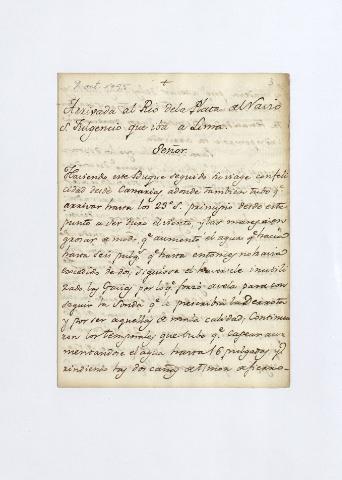 8 oct. 1795
+
3
Arrivada al Rio dela Plata del Navio
S. Fulgencio que iba a Lima.
Señor.
Haviendo este Buque seguido su viage con feli-
cidad desde Canarias adonde tambien tubo qe.
arrivar hasta los 23° S. principio desde este
punto a ser el viento, y las mares gruesas
de modo qe. aumento el agua qe. hacia
hasta seis pulgs. qe. hasta entonces no havia
excedido de dos, siguiose el
las por lo qe. para con
seguir la Sonda qe. le prescribia Derrota
y por ser aquellas de mala calidad, Continua
ron los temporales que tubo qe. capear au-
mentandose el agua hasta 16 pulgadas y
rindiendo las dos cañas del timon